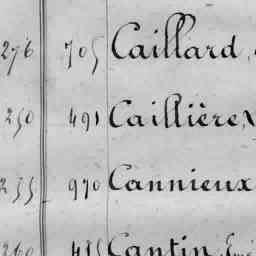 276 705 Caillard,
250 491 Caillière,
255 970 Cannieux
260 485 Cantin,